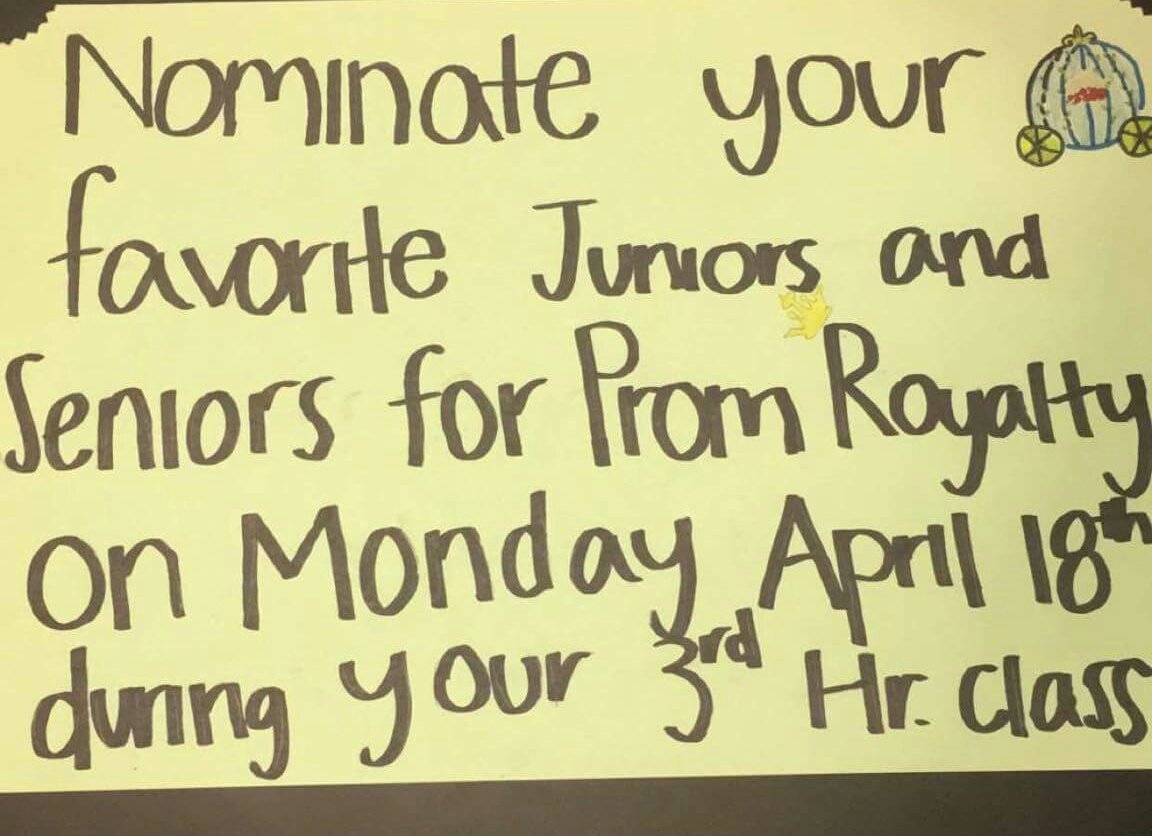 Nominate your
favorite Juniors and
Seniors for Prom Royalty
on Monday April 18th
during your 3rd Hr. class